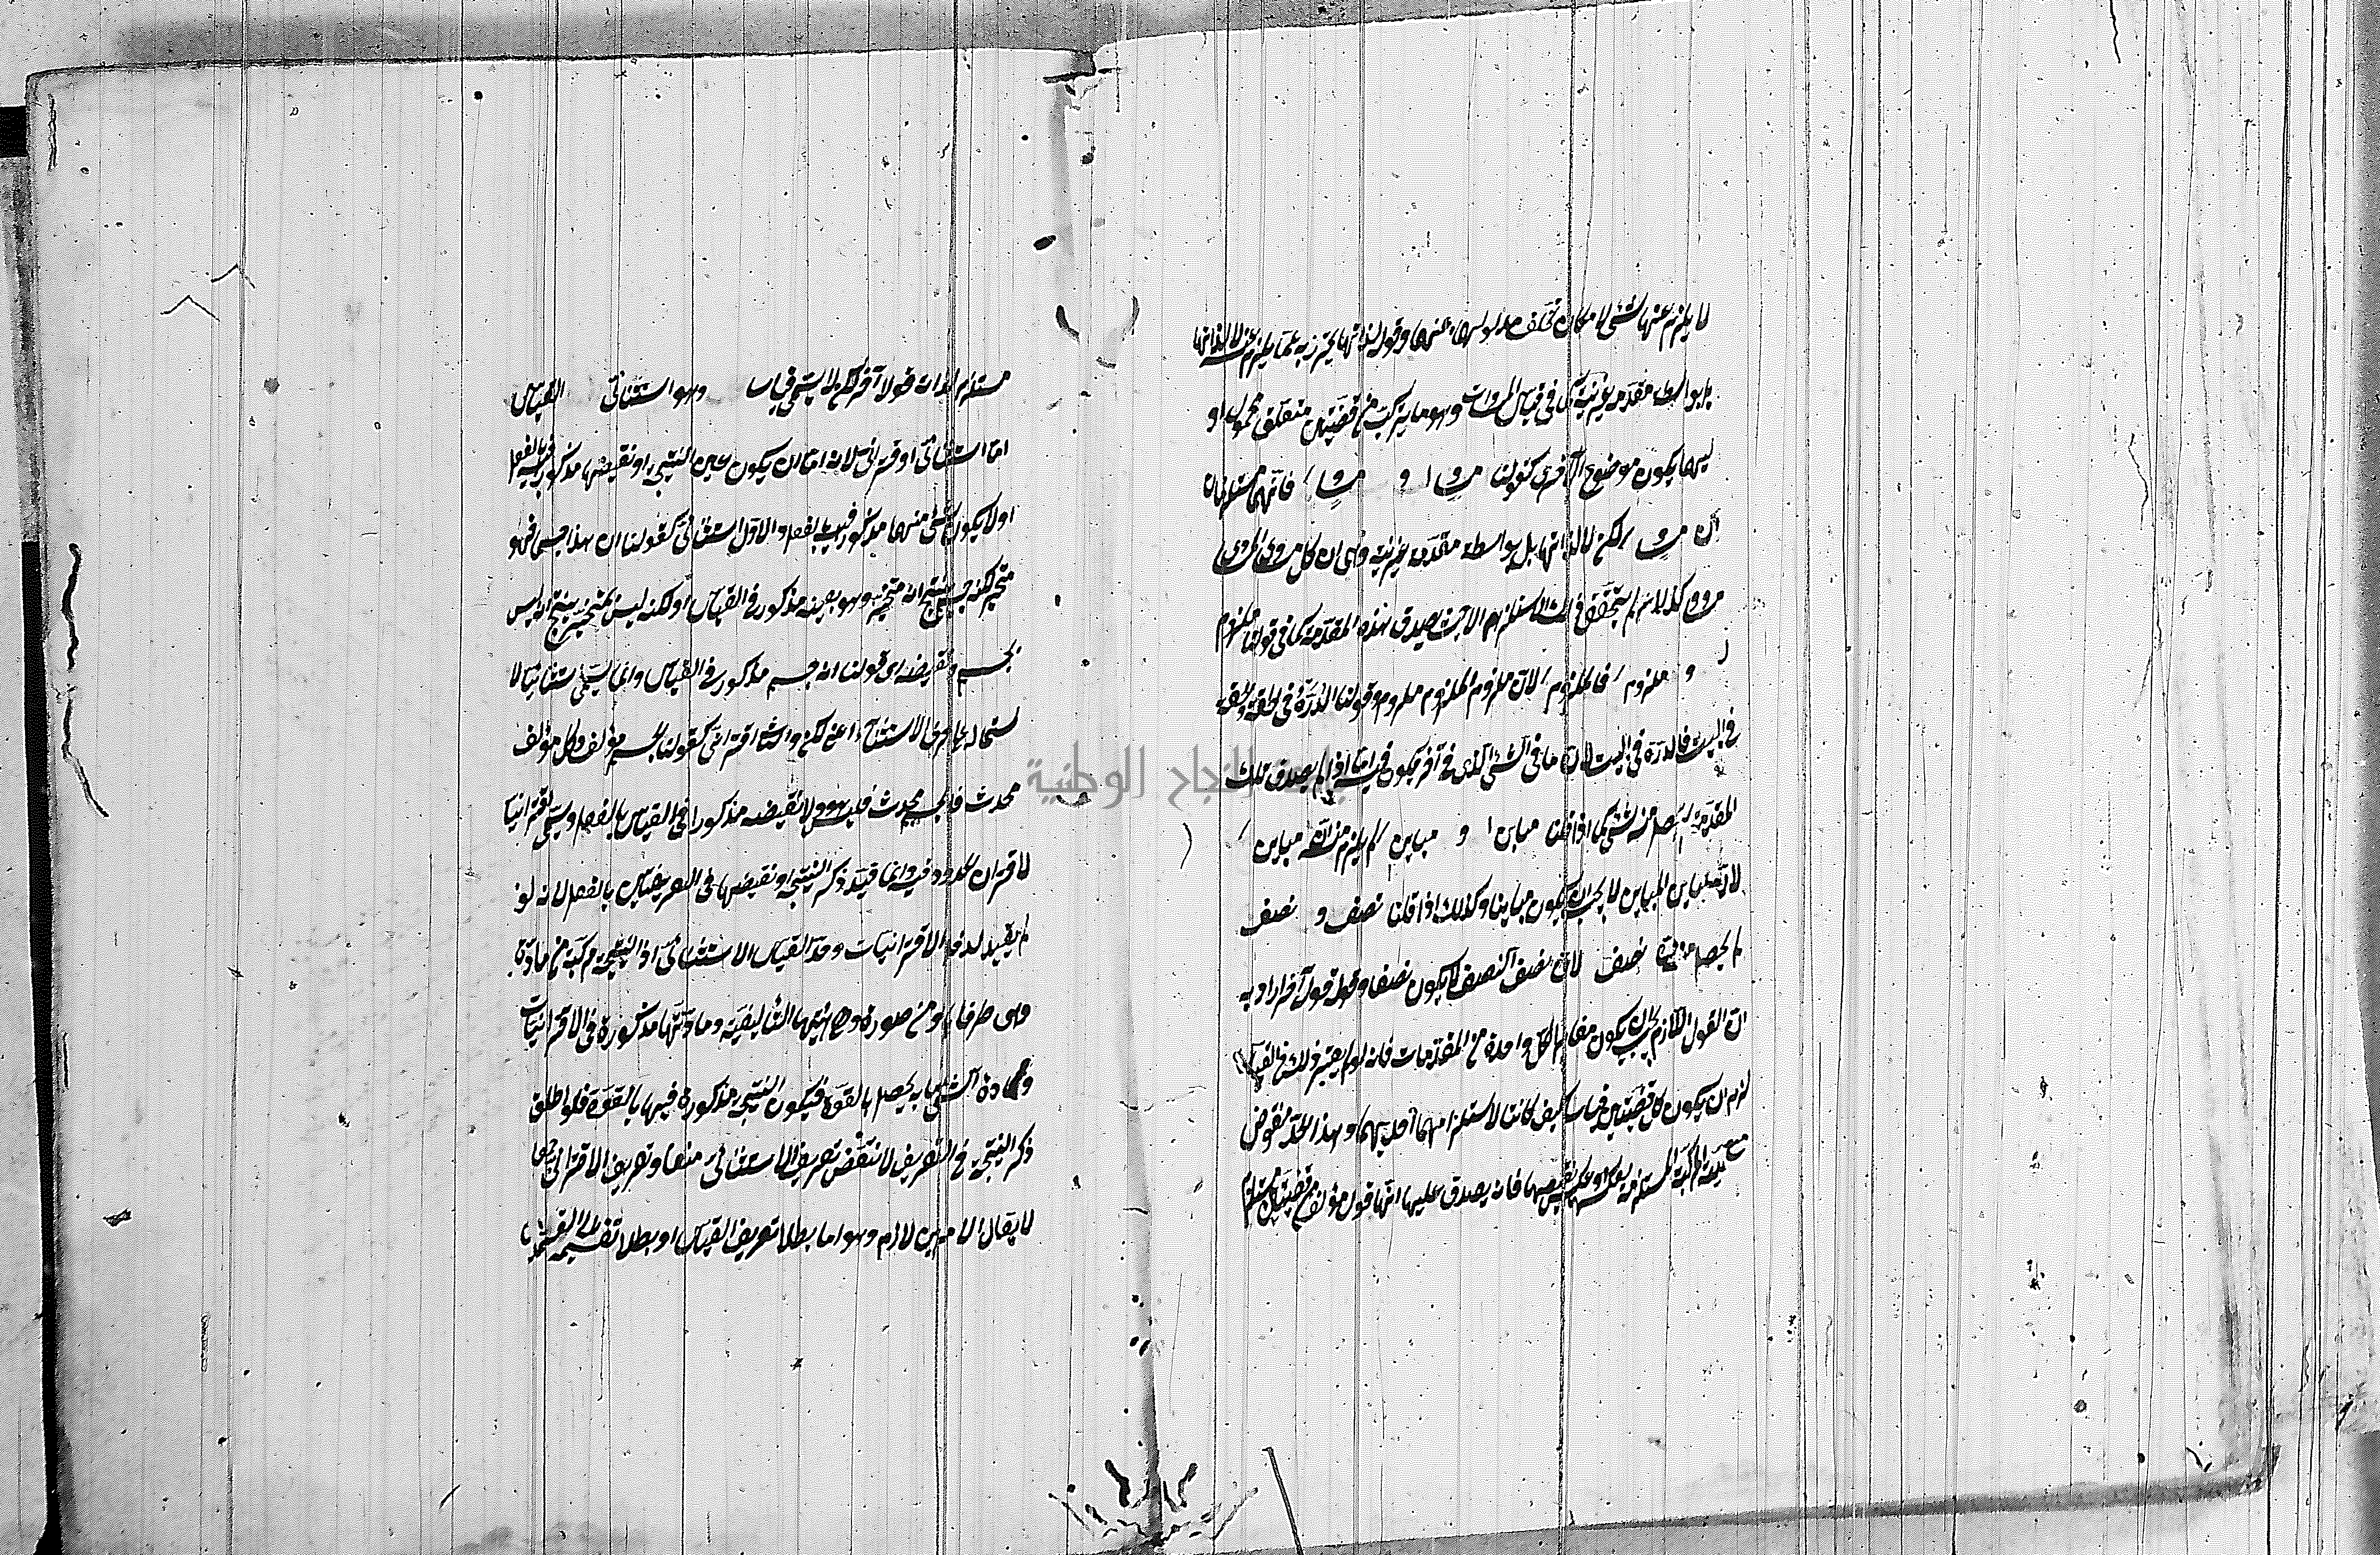 لا يلزم عنها شئ لا مكان تخلف مدلولهما عنهما وقوله لذاتها يحترز به عما يلزم لا لذاتها
بل بواسطة مقدمة غريبة كما فى قياس المساوات وهو ما يتركب من قضيتين متعلق محمول او
ليهما يكون موضوع الاخرى كقولنا و فانهما يستلزمان
ان لكن لا لذاتهما بل بواسطة مقدمة غريبة وهى ان كل مساوى المساوى
مساو ولذلك لم يتحقق ذلك الاستلزام الا حيث يصدق هذه المقدمة كما فى قولنا ملزوم
و ملزوم فا ملزوم لان ملزوم الملزوم ملزوم وقولنا الدرة فى الحقة والحقة
فى البيت فالدرة فى البيت لان ما فى الشئ الذى فى آخر يكون فيه اما اذا لم يصدق تلك
المقدمة لم يحصل منه شئ كما اذا قلنا مباين و مباين لم يلزم منه ان مباين
لان مباين المباين لا يجب ان يكون مباينا وكذلك اذا قلنا نصف و نصف
لم يحصل منه نصف لان نصف النصف لا يكون نصفا وقوله قول آخر اراد به
ان القول اللازم يجب ان يكون مغايرا لكل واحدة من المقدمات فانه لو لم يعتبر ذلك فى القياس
لزم ان يكون كل قضيتين قياسا كيف كانتا لاستلزامهما احديهما وهذا الحد منقوض
بالقضية المركبة المستلزمة لعكسها وعكس نقيضها فانه يصدق عليها انها قول مؤلف من قضيتين يستلزم
مستلزم لذاته قولا آخر لكن لا يسمى قياسا وهو استثنائى القياس
اما استثنائى او اقترانى لانه اما ان يكون عين النتيجة او نقيضها مذكورا فيه بالفعل
او لا يكون شئ منهما مذكورا فيه بالفعل والاول استثنائى كقولنا ان كان هذا جسما فهو
متحيز لكنه جسم ينتج انه متحيز وهو بعينه مذكور فى القياس او لكنه ليس بمتحيز ينتج انه ليس
بجسم ونقيضه اى قولنا انه جسم مذكور فى القياس وانما يسمى استثنائيا لا
شتماله على حرف الاستثناء اعنى لكن والثانى اقترانى كقولنا الجسم مؤلف وكل مؤلف
محدث فالجسم محدث فليس هو ولا نقيضه مذكورا فى القياس بالفعل ويسمى اقترانيا
لاقتران الحدود فيه وانما قيد ذكر النتيجة او نقيضها فى التعريفين بالفعل لانه لو
لم يقيد لدخل الاقترانيات وحد القياس الاستثنائى اذ النتيجة مركبة من مادة
وهى طرفاها ومن صورة وهى هيئتها التأليفية ومادتها مذكورة فى الاقترانيات
ومادة الشئ ما به يحصل بالقوة فيكون النتيجة مذكورة فيها بالقوة فلو اطلق
ذكر النتيجة فى التعريف لانتقض تعريف الاستثنائى منعا وتعريف الاقترانى جمعا
لا يقال الامرين لازم وهو اما بطلان تعريف القياس او بطلان تقسيمه الى القسمين